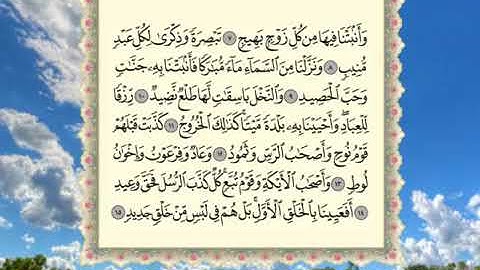 وَأَنۢبَتْنَا فِيهَا مِن كُلِّ زَوْجٍۭ بَهِيجٍ ٧ تَبْصِرَةً وَذِكْرَىٰ لِكُلِّ عَبْدٍ
مُّنِيبٍ ٨ وَنَزَّلْنَا مِنَ ٱلسَّمَآءِ مَآءً مُّبَٰرَكًا فَأَنۢبَتْنَا بِهِۦ جَنَّٰتٍ
وَحَبَّ ٱلْحَصِيدِ ٩ وَٱلنَّخْلَ بَاسِقَٰتٍ لَّهَا طَلْعٌ نَّضِيدٌ ١٠ رِّزْقًا
لِّلْعِبَادِ ۖ وَأَحْيَيْنَا بِهِۦ بَلْدَةً مَّيْتًا ۚ كَذَٰلِكَ ٱلْخُرُوجُ ١١ كَذَّبَتْ قَبْلَهُمْ
قَوْمُ نُوحٍ وَأَصْحَٰبُ ٱلرَّسِّ وَثَمُودُ ١٢ وَعَادٌ وَفِرْعَوْنُ وَإِخْوَٰنُ
لُوطٍ ١٣ وَأَصْحَٰبُ ٱلْأَيْكَةِ وَقَوْمُ تُبَّعٍ ۚ كُلٌّ كَذَّبَ ٱلرُّسُلَ فَحَقَّ وَعِيدِ
١٤ أَفَعَيِينَا بِٱلْخَلْقِ ٱلْأَوَّلِ ۚ بَلْ هُمْ فِى لَبْسٍ مِّنْ خَلْقٍ جَدِيدٍ ١٥